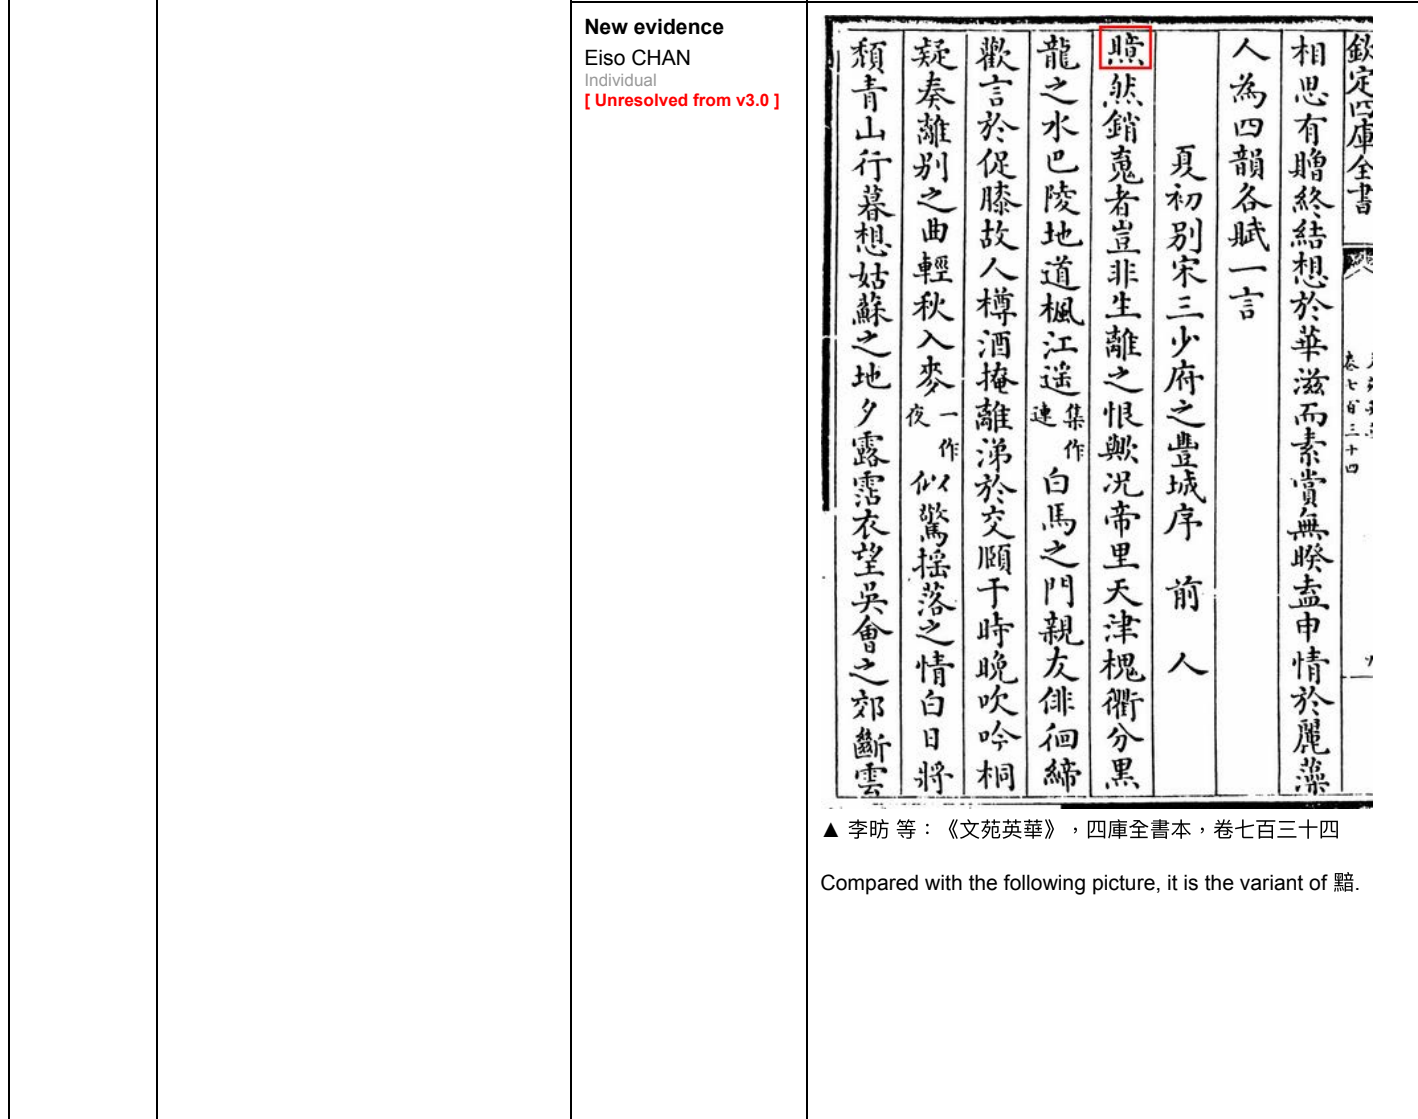 New evidence
Eiso CHAN
Individual
[ Unresolved from v3.0 ]
欽定四庫全書
卷七百三十四
相思有贈終結想於華滋而素賞無睽盍申情於麗藻
人為四韻各賦一言
夏初別宋三少府之豐城序 前人
然銷䰟者豈非生離之恨歟况帝里天津槐衢分黒
龍之水巴陵地道楓江遥集作連白馬之門親友俳徊締
歡言於促膝故人樽酒掩離涕於交頤于時晚吹吟桐
疑奏離別之曲輕秋入麥一作夜似驚揺落之情白日將
頽青山行暮想姑蘇之地夕露霑衣望吳會之郊斷雲
▲ 李昉 等：《文苑英華》，四庫全書本，卷七百三十四
Compared with the following picture, it is the variant of 黯.